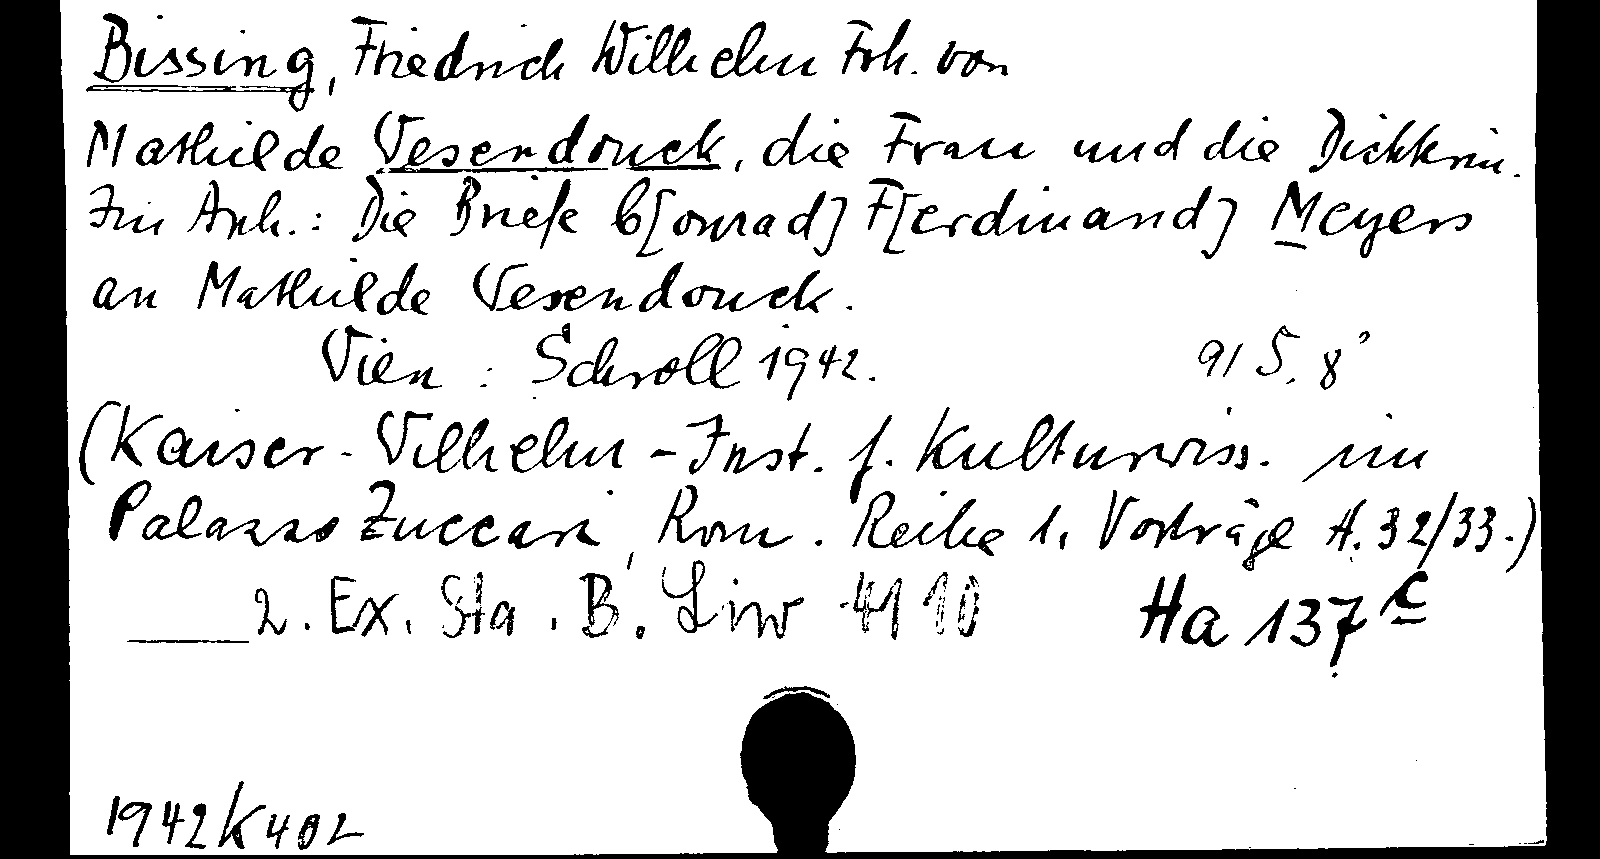 Bissing, Friedrich Wilhelm Frh. von
Mathilde Wesendonck, die Frau und die Dichterin.
Im Anh.: Die Briefe C[onrad] F[erdinand] Meyers
an Mathilde Wesendonck.
Wien : Schroll 1942. 91 S. 8°
(Kaiser-Wilhelm-Inst. f. Kulturwiss. im
Palazzo Zuccari, Rom. Reihe 1, Vorträge H. 32/33.)
2. Ex. Sta. B. Liw 4110 Ha 137 c
1942 K 402